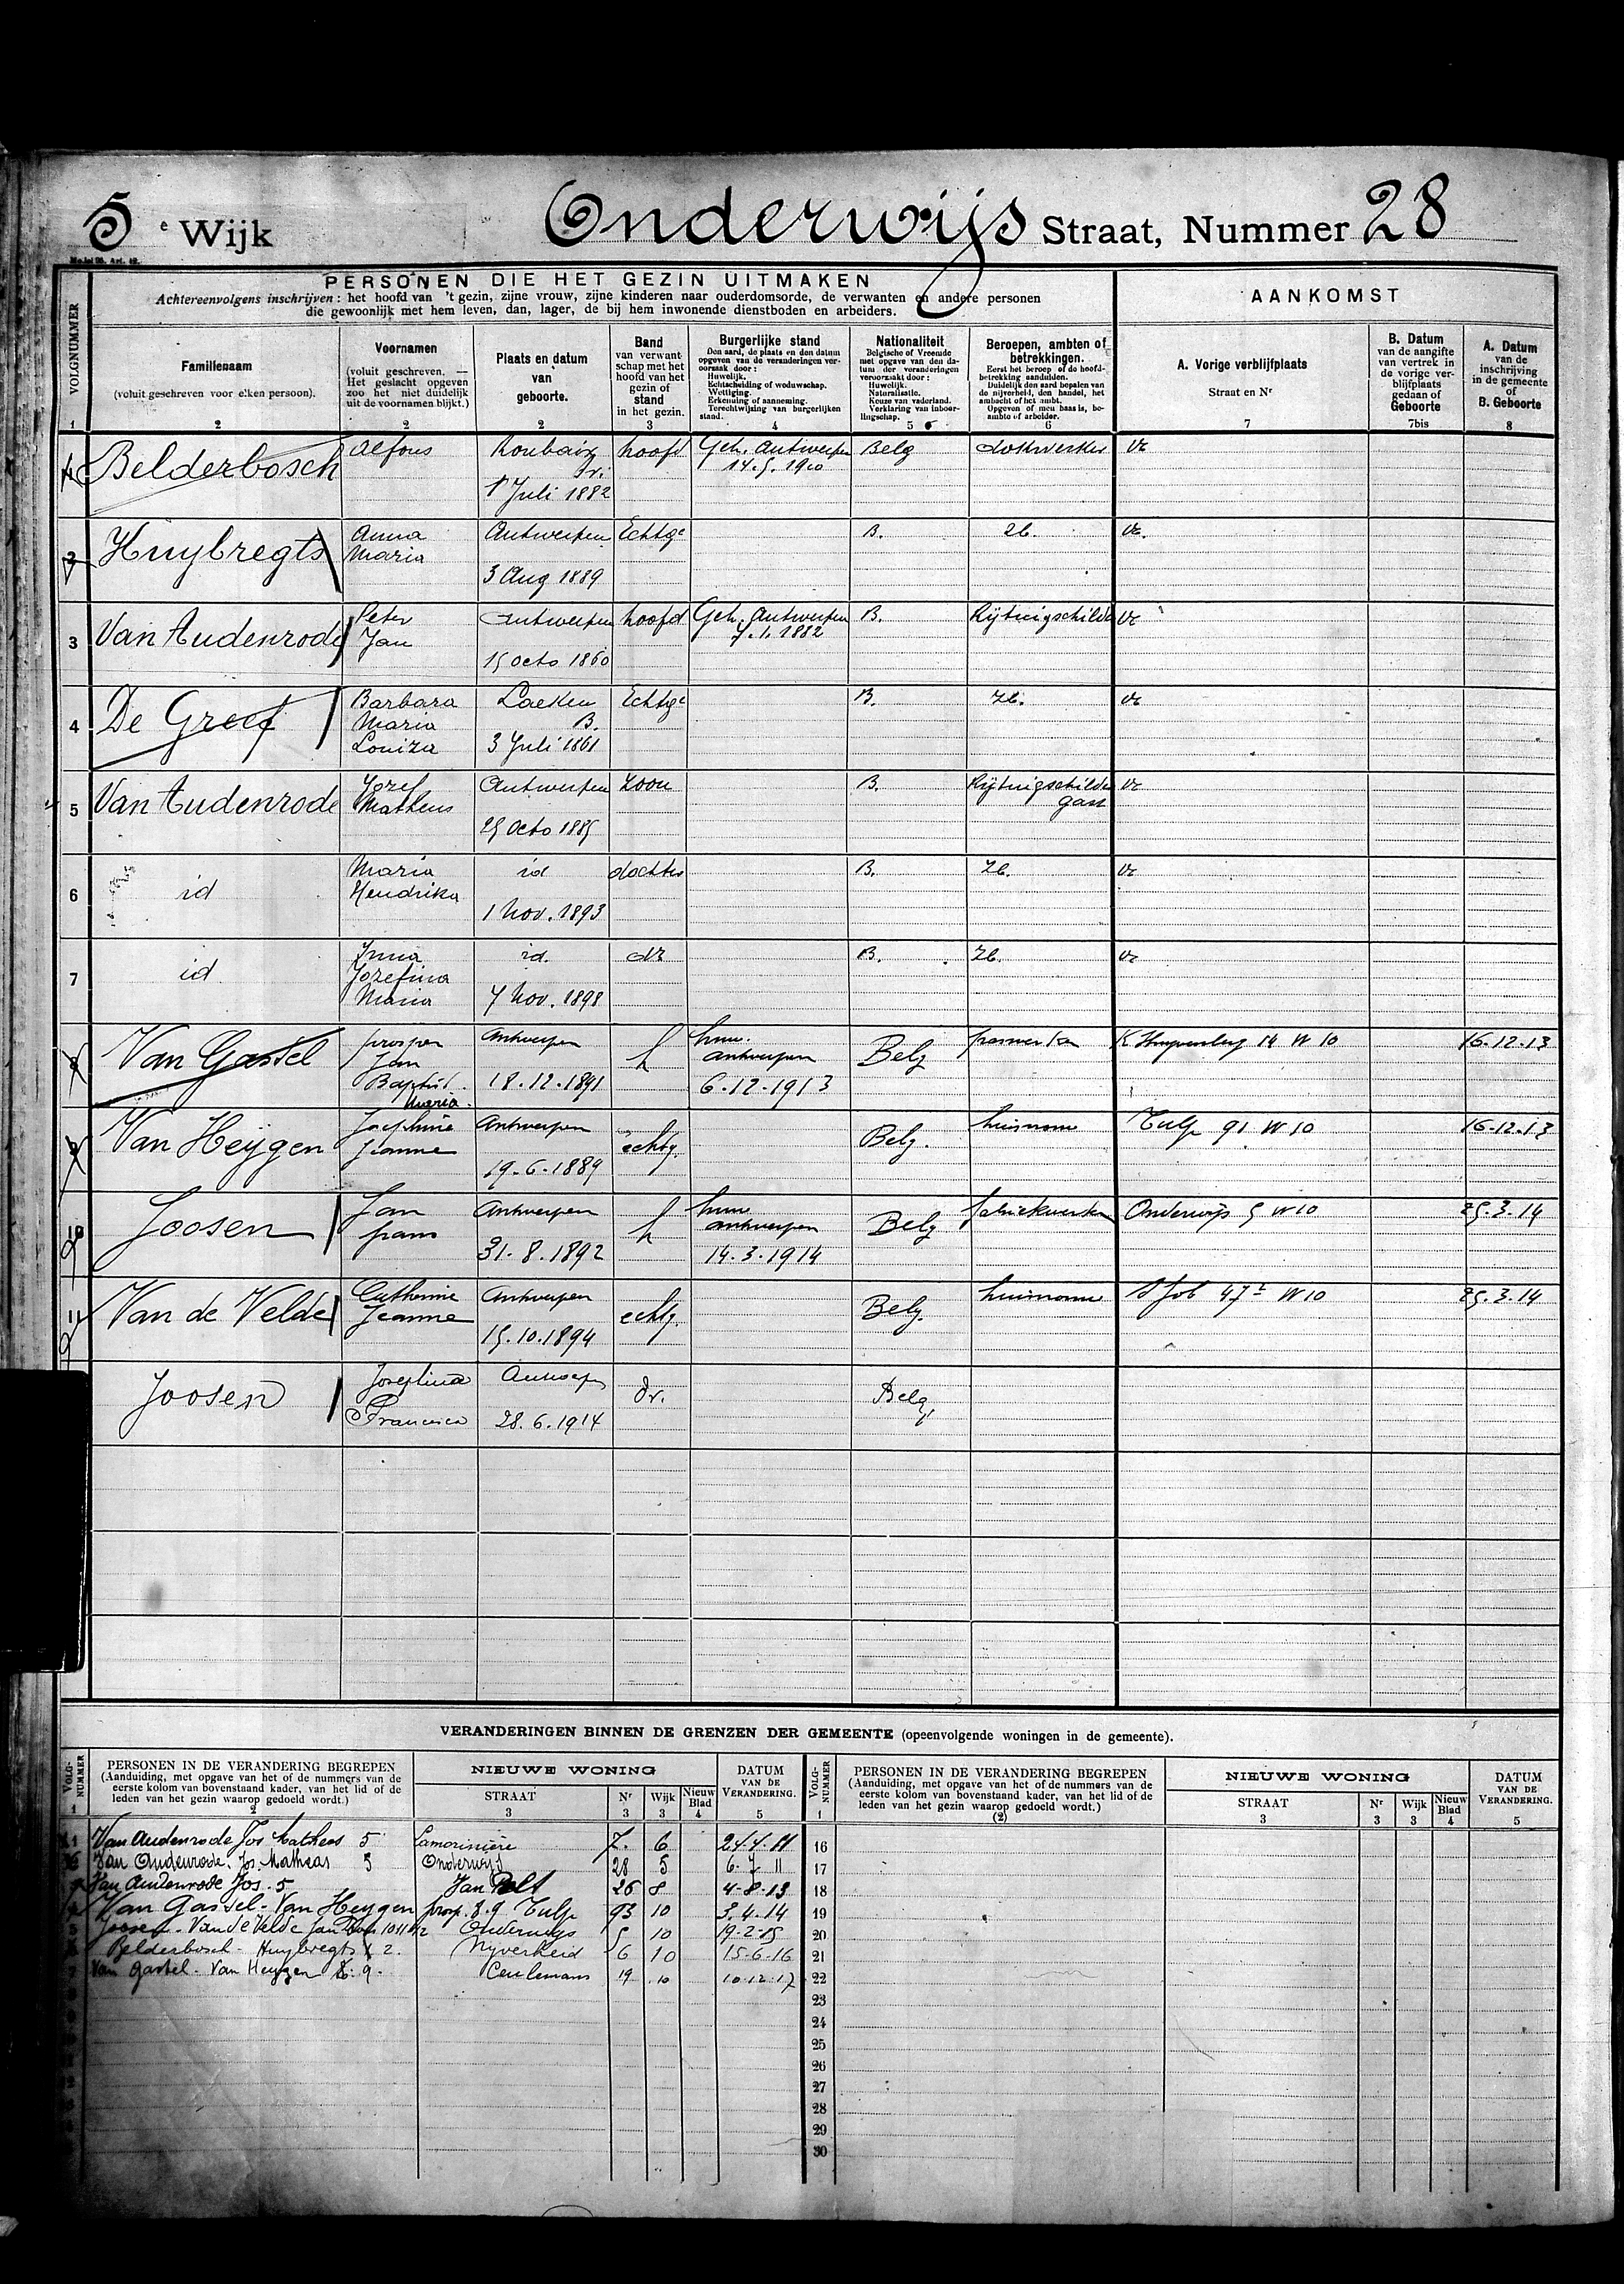 5 e Wijk Onderwijs Straat, Nummer 28
PERSONEN DIE HET GEZIN UITMAKEN
Achtereenvolgens inschrijven : het hoofd van 't gezin, zijne vrouw, zijne kinderen naar ouderdomsorde, de verwanten en andere personen
die gewoonlijk met hem leven, dan, lager, de bij hem inwonende dienstboden en arbeiders.
AANKOMST
VOLGNUMMER
Familienaam
(voluit geschreven voor elken persoon).
Voornamen
(voluit geschreven. —
Het geslacht opgeven
zoo het niet duidelijk
uit de voornamen blijkt.)
Plaats en datum
van
geboorte.
Band
van verwant-
schap met het
hoofd van het
gezin of
stand
in het gezin.
Burgerlijke stand
Den aard, de plaats en den datum
opgeven van de veranderingen ver-
oorzaakt door :
Huwelijk.
Echtscheiding of weduwschap.
Wettiging.
Erkenning of aanneming.
Terechtwijzing van burgerlijken
stand.
Nationaliteit
Belgische of Vreemde
met opgave van den da-
tum der veranderingen
veroorzaakt door :
Huwelijk.
Naturalisatie.
Keuze van vaderland.
Verklaring van inboor-
lingschap.
Beroepen, ambten of
betrekkingen.
Eerst het beroep of de hoofd-
betrekking aanduiden.
Duidelijk den aard bepalen van
de nijverheid, den handel, het
ambacht of het ambt.
Opgeven of men baas is, be-
ambte of arbeider.
A. Vorige verblijfplaats
Straat en Nr
B. Datum
van de aangifte
van vertrek in
de vorige ver-
blijfplaats
gedaan of
Geboorte
A. Datum
van de
inschrijving
in de gemeente
of
B. Geboorte
1 2 2 2 3 4 5 6 7 7bis 8
Belderbosch Alfons Roubaix hoofd Geh. Antwerpen Belg dokwerker
14.5.1910
1 Juli 1882
2 Huybregts Anna Antwerpen Echtge B.
Maria
3 Aug 1889
3 Van Audenrode Peter Antwerpen hoofd Geh. Antwerpen B. Rijtuigschilder
Jan 7.1.1882
15 Octo 1860
4 De Greef Barbara Laeken Echtge B.
Maria B.
Louiza 3 Juli 1861
5 Van Audenrode Jozef Antwerpen Zoon B. Rijtuigschilder
Matheus gast
25 Octo 1885
6 id Maria id dochter B.
Hendrika
1 Nov. 1893
7 id id. B.
Jozefina
Maria 7 Nov. 1898
8 Van Gassel prosper Antwerpen h huw. Belg 16-12-13
Jan antwerpen
Baptist. 18-12-1891 6-12-1913
Maria.
9 Van Heijgen Josephine Antwerpen echtg. Belg. huisvrouw Tulp 91 W 10 16-12-13
Jeanne
19-6-1889
10 Joosen Jan Antwerpen h huw Belg fabriekwerker Onderwijs 5 W10 25.3.14
frans antwerpen
31-8-1892 14-3-1914
11 Van de Velde Catherine Antwerpen echtg. Belg. huisvrouw St Job 47 W10 25.3.14
Jeanne
15.10.1894
Joosen Josephina Antwerpen dr. Belg.
Francisca 28.6.1914
VERANDERINGEN BINNEN DE GRENZEN DER GEMEENTE (opeenvolgende woningen in de gemeente).
VOLG-
NUMMER
PERSONEN IN DE VERANDERING BEGREPEN
(Aanduiding, met opgave van het of de nummers van de
eerste kolom van bovenstaand kader, van het lid of de
leden van het gezin waarop gedoeld wordt.)
NIEUWE WONING
STRAAT Nr Wijk Nieuw
Blad
DATUM
VAN DE
VERANDERING.
1 2 3 3 3 4 5
VOLG-
NUMMER
PERSONEN IN DE VERANDERING BEGREPEN
(Aanduiding, met opgave van het of de nummers van de
eerste kolom van bovenstaand kader, van het lid of de
leden van het gezin waarop gedoeld wordt.)
NIEUWE WONING
STRAAT Nr Wijk Nieuw
Blad
DATUM
VAN DE
VERANDERING.
1 (2) 3 3 3 4 5
Van Audenrode Jos Matheas 5 Lamorinière 7. 6 24.4.11 16
Van Oudenrode. Jos. Matheas 5 Onderwijs 28 5 6-7 11 17
Van Audenrode Jos. 5 Jan Belt 26 8 4-8-13 18
Van Gassel - Van Heygen prosp. 8.9 Tulp 93 10 3.4.14 19
Joosen - Van de Velde Jan 10 11 12 Onderwijs 5 10 19-2-15 20
Belderbosch - Huybregts 1 2. Nijverheid 6 10 15-6-16 21
Van Gastel - Van Heygen 8. 9. Ceulemans 19 10 10.12.17 22
23
24
25
26
27
28
29
30